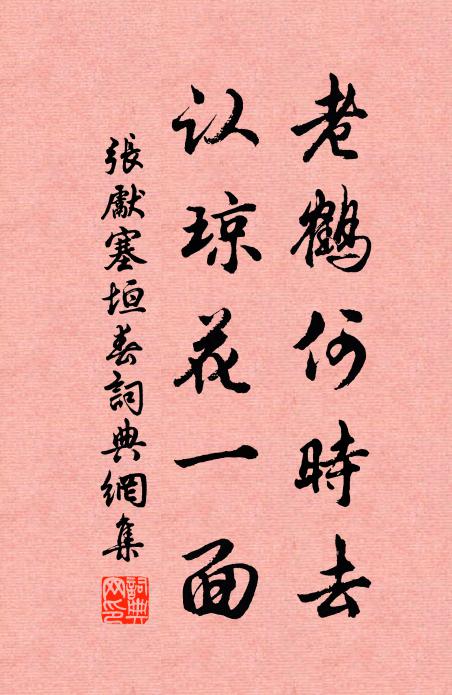 老鶴何時去
认琼花一面
張獻塞垣春詞典網集
詞典
网印